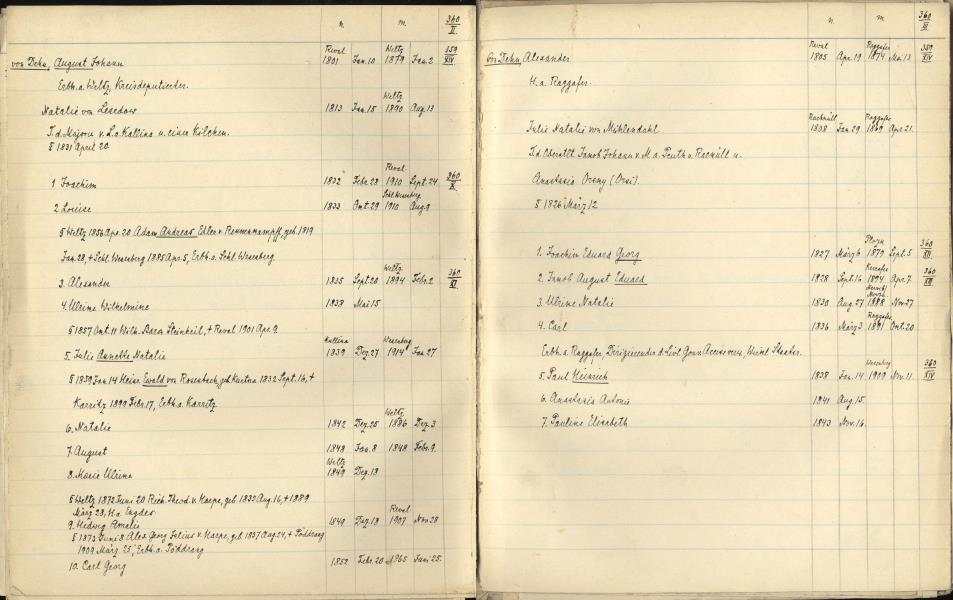 n. m. 360 II.
Reval Weltz 359
von Dehn, August Johann 1801 Jan. 10 1879 Jan. 2 XIV
Erbh. a. Weltz, Kreisdeputierter.
Weltz
Natalie von Lesedow 1813 Jan. 15 1890 Aug. 13
T. d. Majors v. L. a. Kallina u. einer Kilchen.
§ 1831 April 20.
Reval
1 Joachim 1832 Febr. 23 1910 Sept. 24 360
Schl. Wesenberg
2 Louise 1833 Okt. 29 1910 Aug. 9
§ Weltz 1856 Apr. 20 Adam Andreas Edler v. Rennenkampff, geb. 1819
Jan. 28, + Schl. Wesenberg 1885 Apr. 5, Erbh. a. Schl. Wesenberg
Weltz
3. Alexander 1835 Sept. 20 1894 Febr. 2 360 XI
4. Ulrike Wilhelmine 1838 Mai 15
§ 1857 Okt. 11 Wilh. Baron Steinheil, + Reval 1901 Apr. 9.
Kallina Wesenberg
5. Julie Annette Natalie 1839 Dez. 27 1914 Jan. 27
§ 1859 Jan. 14 Heinr. Ewald von Rosenbach, geb. Kurtna 1832 Sept. 16, +
Karritz 1899 Febr. 17, Erbh. a. Karritz
Weltz
6. Natalie 1842 Dez. 25 1886 Dez. 3
7. August 1848 Jan. 8 1848 Febr. 9.
Weltz
8. Marie Ulrike 1849 Dez. 13
§ Weltz 1872 Juni 20 Rich. Theod. v. Harpe, geb. 1839 Aug. 16, + 1889
März 23, H. a. Engdes
Reval
9. Hedwig Amalie 1849 Dez. 13 1907 Nov. 28
§ 1873 Juni 8 Alex. Georg Julius v. Harpe, geb. 1837 Aug. 24, + Pöddrang
1909 März 25, Erbh. a. Pöddrang
10. Carl Georg 1852 Febr. 20 1865 Juni 25.
n. m 360 III
Reval Raggafer 359
von Dehn Alexander 1805 Apr. 19 1874 Mai 13 XIV
H. a. Raggafer.
Racknüll Raggafer
Julie Natalie von Mühlendahl 1808 Jan. 29 1869 Apr. 21.
T. d. Oberstlt. Jakob Johann v. M. a. Penth u. Racnüll u.
Anastasia
§ 1826 März 12
1. Joachim Eduard Georg 1827 März 6 1879 Sept. 5 360 XII
2. Jakob August Eduard 1828 Sept. 16 1894 Apr. 7. 360 XIII
3. Ulrike Natalie 1830 Aug. 27 1888 Nov. 27
Raggafer
4. Carl 1836 März 3 1891 Okt. 20
Erbh. a. Raggafer, Dirigierender d. Livl. Gouv. Accisewesen, Wirkl. Staatsr.
Wesenberg
5. Paul Heinrich 1838 Jan. 14 1909 Nov. 11. 360 XIV
6. Anastasia Antonie 1841 Aug. 15.
7. Pauline Elisabeth 1843 Nov. 16.